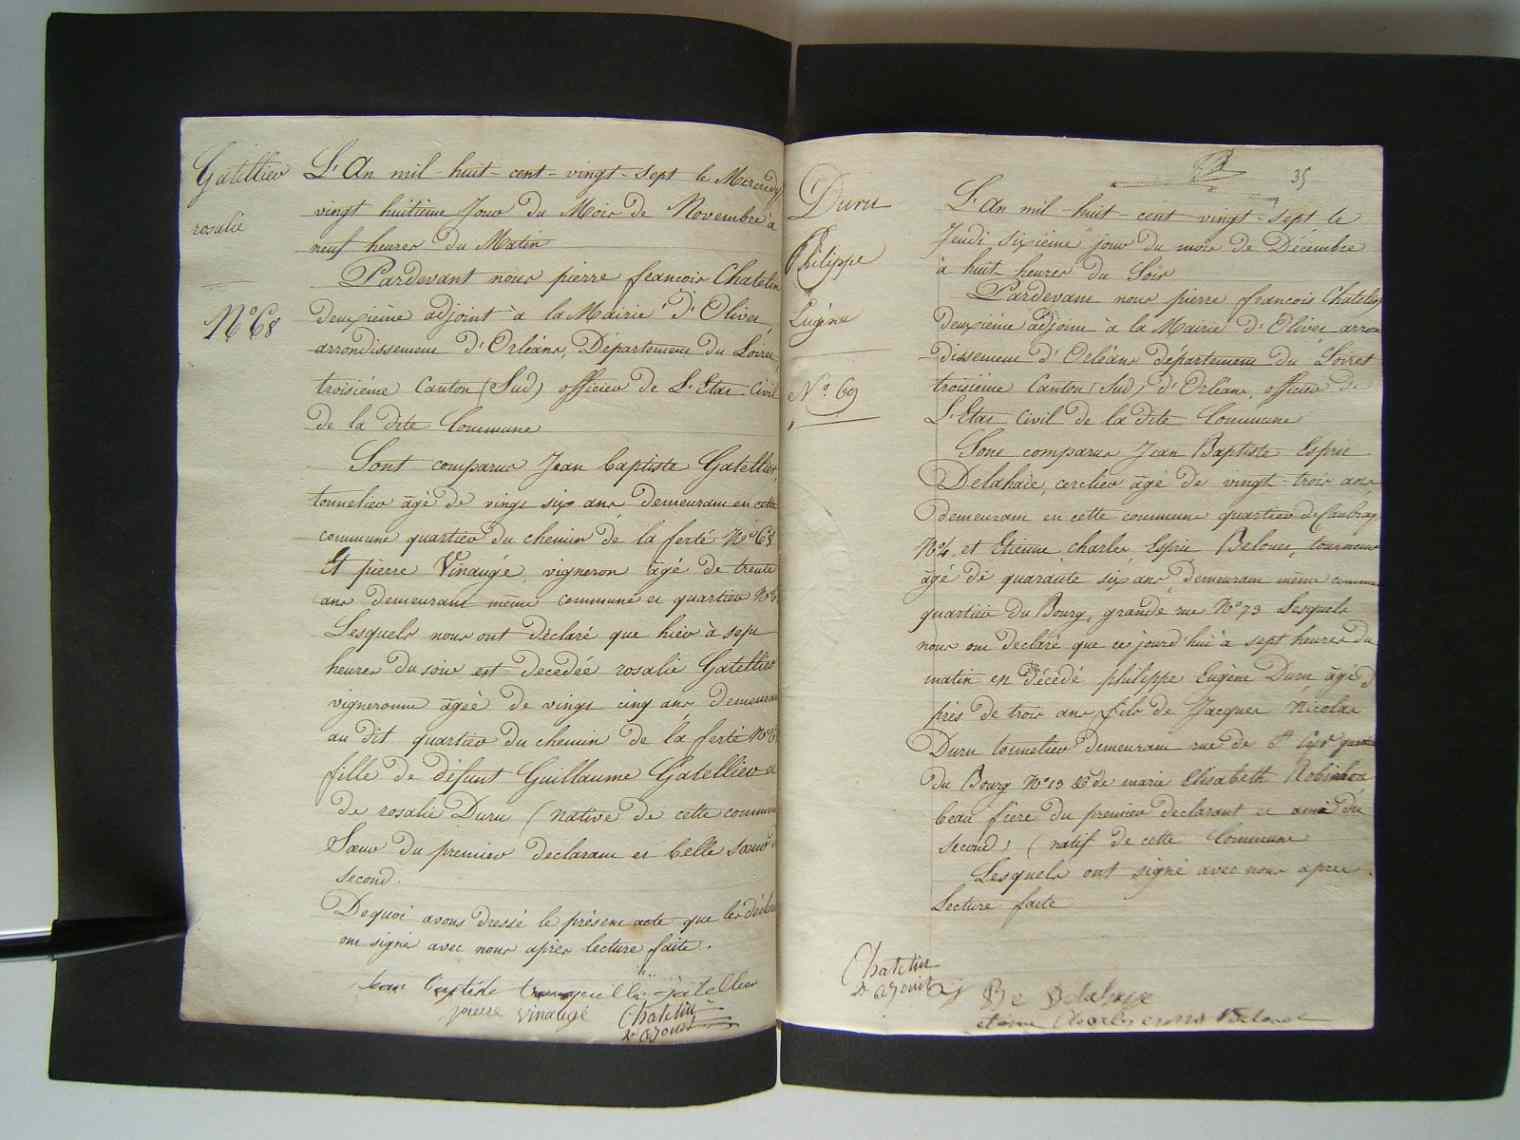 Gatellier
rosalie
N° 68
L'An mil-huit-cent-vingt-sept le Mercredy
vingt huitième Jour du Mois de Novembre à
neuf heures du Matin
Pardevant nous pierre francois Chatelin
deuxième adjoint à la Mairie d'Olivet,
arrondissement d'Orléans, Département du Loiret,
troisième Canton (Sud) officier de L'Etat Civil
de la dite Commune
Sont comparus Jean baptiste Gatellier,
tonnelier âgé de vingt six ans demeurant en cette
commune quartier du chemin de la ferté N° 68
Et pierre Vinaugé, vigneron âgé de trente
ans demeurant même commune et quartier N°
Lesquels nous ont déclaré que hier à sept
heures du soir est décédée rosalie Gatellier
vigneronne âgée de vingt cinq ans demeurant
au dit quartier du chemin de la ferté N°
fille de défunt Guillaume Gatellier et
de rosalie Duru (native de cette commune
Sœur du premier déclarant et belle sœur
second.
De quoi avons dressé le présent acte que les
ont signé avec nous après lecture faite.
Jean baptiste gatellier
pierre vinaugé Chatelin
adjoint
35
Duru
Philippe
Eugène
N° 69
L'An mil-huit-cent vingt-sept le
Jeudi sixième jour du mois de Décembre
à huit heures du Soir
Pardevant nous pierre francois Chatelin
Deuxième adjoint à la Mairie d'Olivet arron
dissement d'Orléans département du Loiret
troisième Canton (Sud) d'Orléans, officier de
L'Etat Civil de la dite Commune
Sont comparus Jean Baptiste Esprit
Delahaie, cerclier âgé de vingt-trois ans
demeurant en cette commune quartier de
N° 4, et Etienne charles Esprit Belouet, tourneur
âgé de quarante six ans demeurant même commune
quartier du Bourg, grande rue N° 73 Lesquels
nous ont declaré que ce jourd'hui à sept heures du
matin est décédé philippe Eugène Duru âgé d
près de trois ans, fils de Jacques Nicolas
Duru tonnelier demeurant rue de St Cyr
du Bourg N° 19 et de marie Elisabeth
beau frère du premier declarant et ami du
second, (natif de cette Commune
Lesquels ont signé avec nous après
Lecture faite
Chatelin
adjoint
J Be Delahaye
etienne Charles